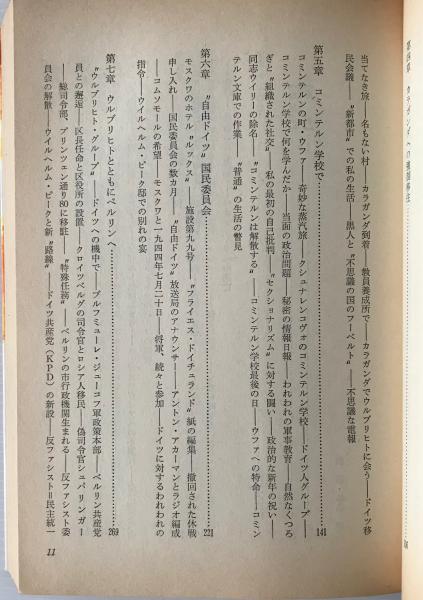 当てなき旅――名もない村――カラガンダ到着――教員養成所で――カラガンダでウルブリヒトに会う――ドイツ移
民会議――"新都市"での私の生活――黒人と"不思議の国のフーベルト"――不思議な電報
第五章　コミンテルン学校で……141
コミンテルンの町・ウファ――奇妙な蒸汽旅――クシュナレンコヴォのコミンテルン学校――ドイツ人グループ――
コミンテルン学校で何を学んだか――当面の政治問題――秘密の情報日報――われわれの軍事教育――自然なくつろ
ぎと"組織された社交"――私の最初の自己批判――"セクショナリズム"に対する闘い――政治的な新年の祝い――
同志ウイリーの除名――"コミンテルンは解散する"――コミンテルン学校最後の日――ウファへの特命――コミン
テルン文庫での作業――"普通"の生活の瞥見
第六章　"自由ドイツ"国民委員会……221
モスクワのホテル"ルックス"――施設第九九号――『フライエス・ドイチュラント』紙の編集――撤回された休戦
申し入れ――国民委員会の数カ月――"自由ドイツ"放送局のアナウンサー――アントン・アカーマンとラジオ編成
――コムソモールの希望――モスクワと一九四四年七月二十日――将軍、続々と参加――ドイツに対するわれわれの
指令――ウイルヘルム・ピーク邸での別れの宴
第七章　ウルブリヒトとともにベルリンへ……269
"ウルブリヒト・グループ"――ドイツへの機中で――ブルフミューレ・ジューコフ軍政策本部――ベルリン共産党
員との邂逅――区長任命と区役所の設置――クロイツベルグの司令官とロシア人移民――偽司令官シュパリンガー
――総司令部、プリンツェン通り80に移駐――"特殊任務"――ベルリンの市行政機関生まれる――反ファシスト委
員会の解散――ウイルヘルム・ピークと新"路線"――ドイツ共産党（KPD）の新設――反ファシスト＝民主統一
11